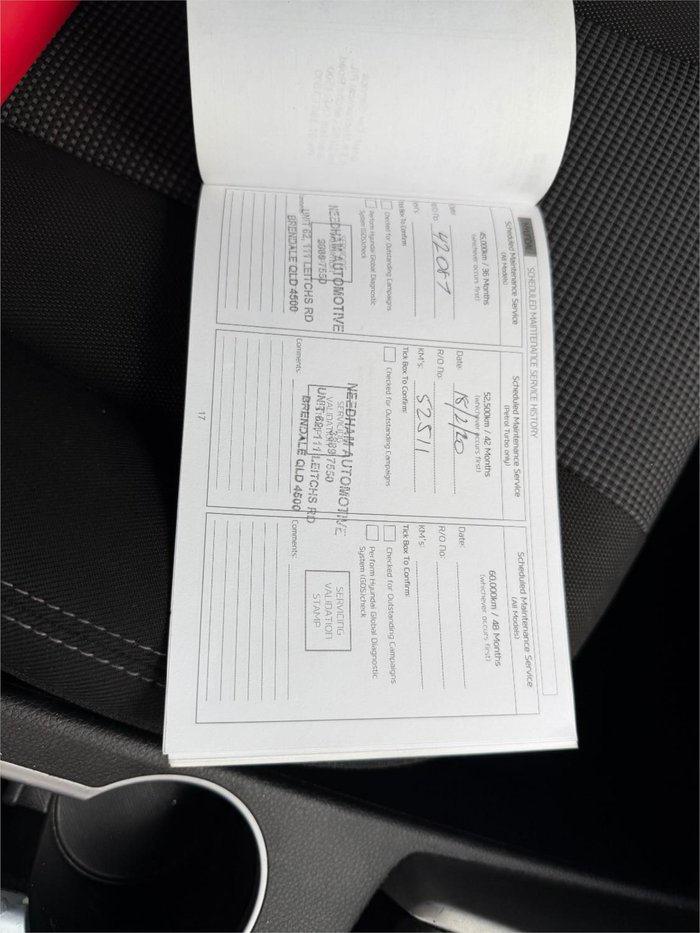 SCHEDULED MAINTENANCE SERVICE HISTORY
Scheduled Maintenance Service
(All Models)
45,000km / 36 Months
(whichever occurs first)
R/O No:
42087
Tick Box To Confirm:
Checked for Outstanding Campaigns
Perform Hyundai Global Diagnostic
System (GDS)check
NEEDHAM AUTOMOTIVE
UNIT 62, 111 LEITCHS RD
BRENDALE QLD 4500
Scheduled Maintenance Service
(Petrol Turbo only)
52,500km / 42 Months
(whichever occurs first)
Date: 18/2/20
R/O No:
KM's: 52511
Tick Box To Confirm:
Checked for Outstanding Campaigns
NEEDHAM AUTOMOTIVE
SERVICING
VALIDATION
UNIT 62, 111 LEITCHS RD
BRENDALE QLD 4500
Comments:
Scheduled Maintenance Service
(All Models)
60,000km / 48 Months
(whichever occurs first)
Date:
R/O No:
KM's:
Tick Box To Confirm:
Checked for Outstanding Campaigns
Perform Hyundai Global Diagnostic
System (GDS)check
SERVICING
VALIDATION
STAMP
Comments:
17